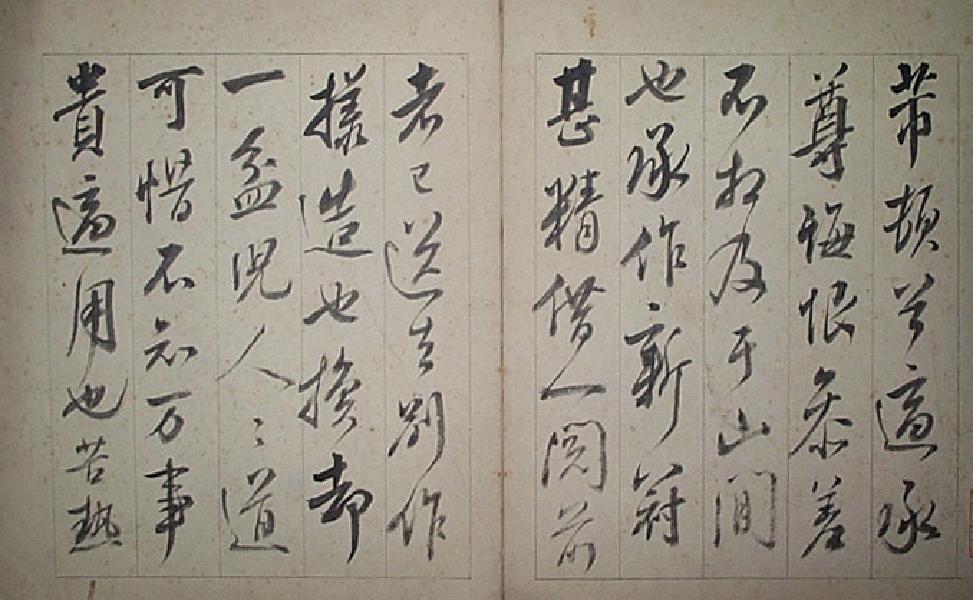 芾頓首適承
尊悔恨叅差
不相及于山間
也承作新冠
甚精借一閱前
者已送去別作
樣造也換却
一盆兒人〻道
可惜不知万事
貴適用也苦熱